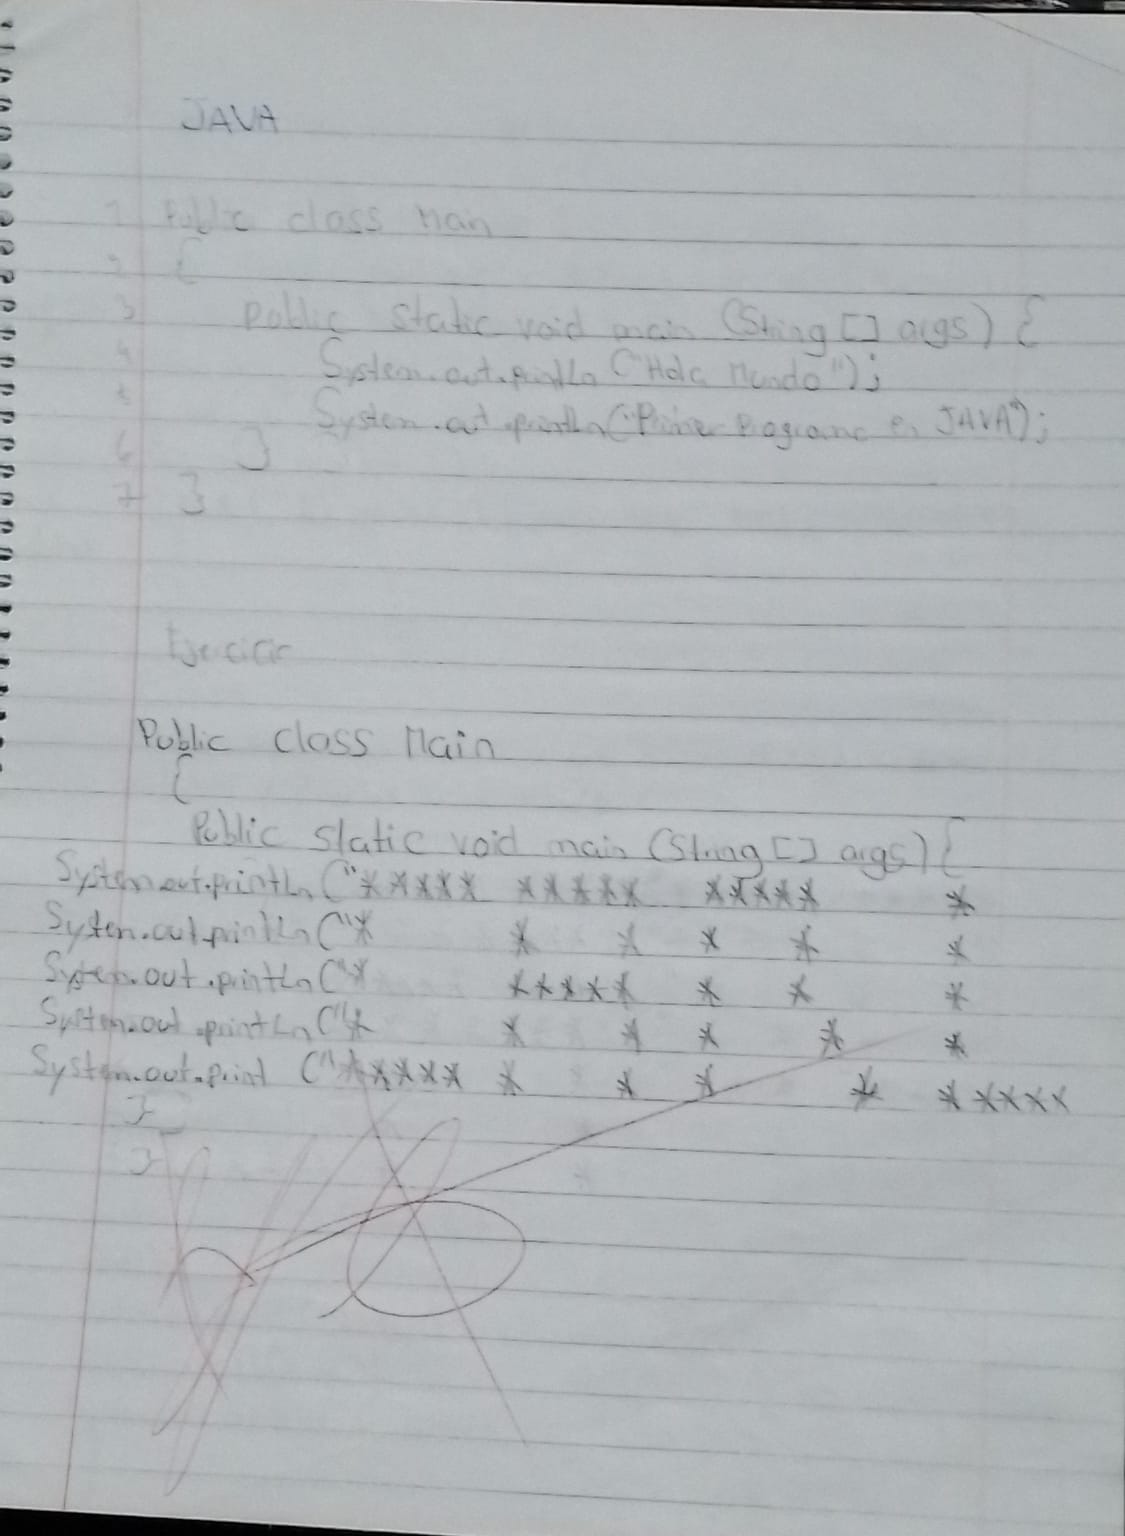 JAVA
1 Public class Main
2 {
3 public static void main (String [] args) {
4 System.out.println ("Hola Mundo");
5 System.out.println ("Primer Programa en JAVA");
6 }
7 }
Ejercicio
Public class Main
{
Public static void main (String [] args) {
System.out.println ("* * * * * * * * * * * * * * * *
System.out.println ("* * * * * *
System.out.println ("* * * * * * * * *
System.out.println ("* * * * * *
System.out.print ("* * * * * * * * * * * * * *
}
}